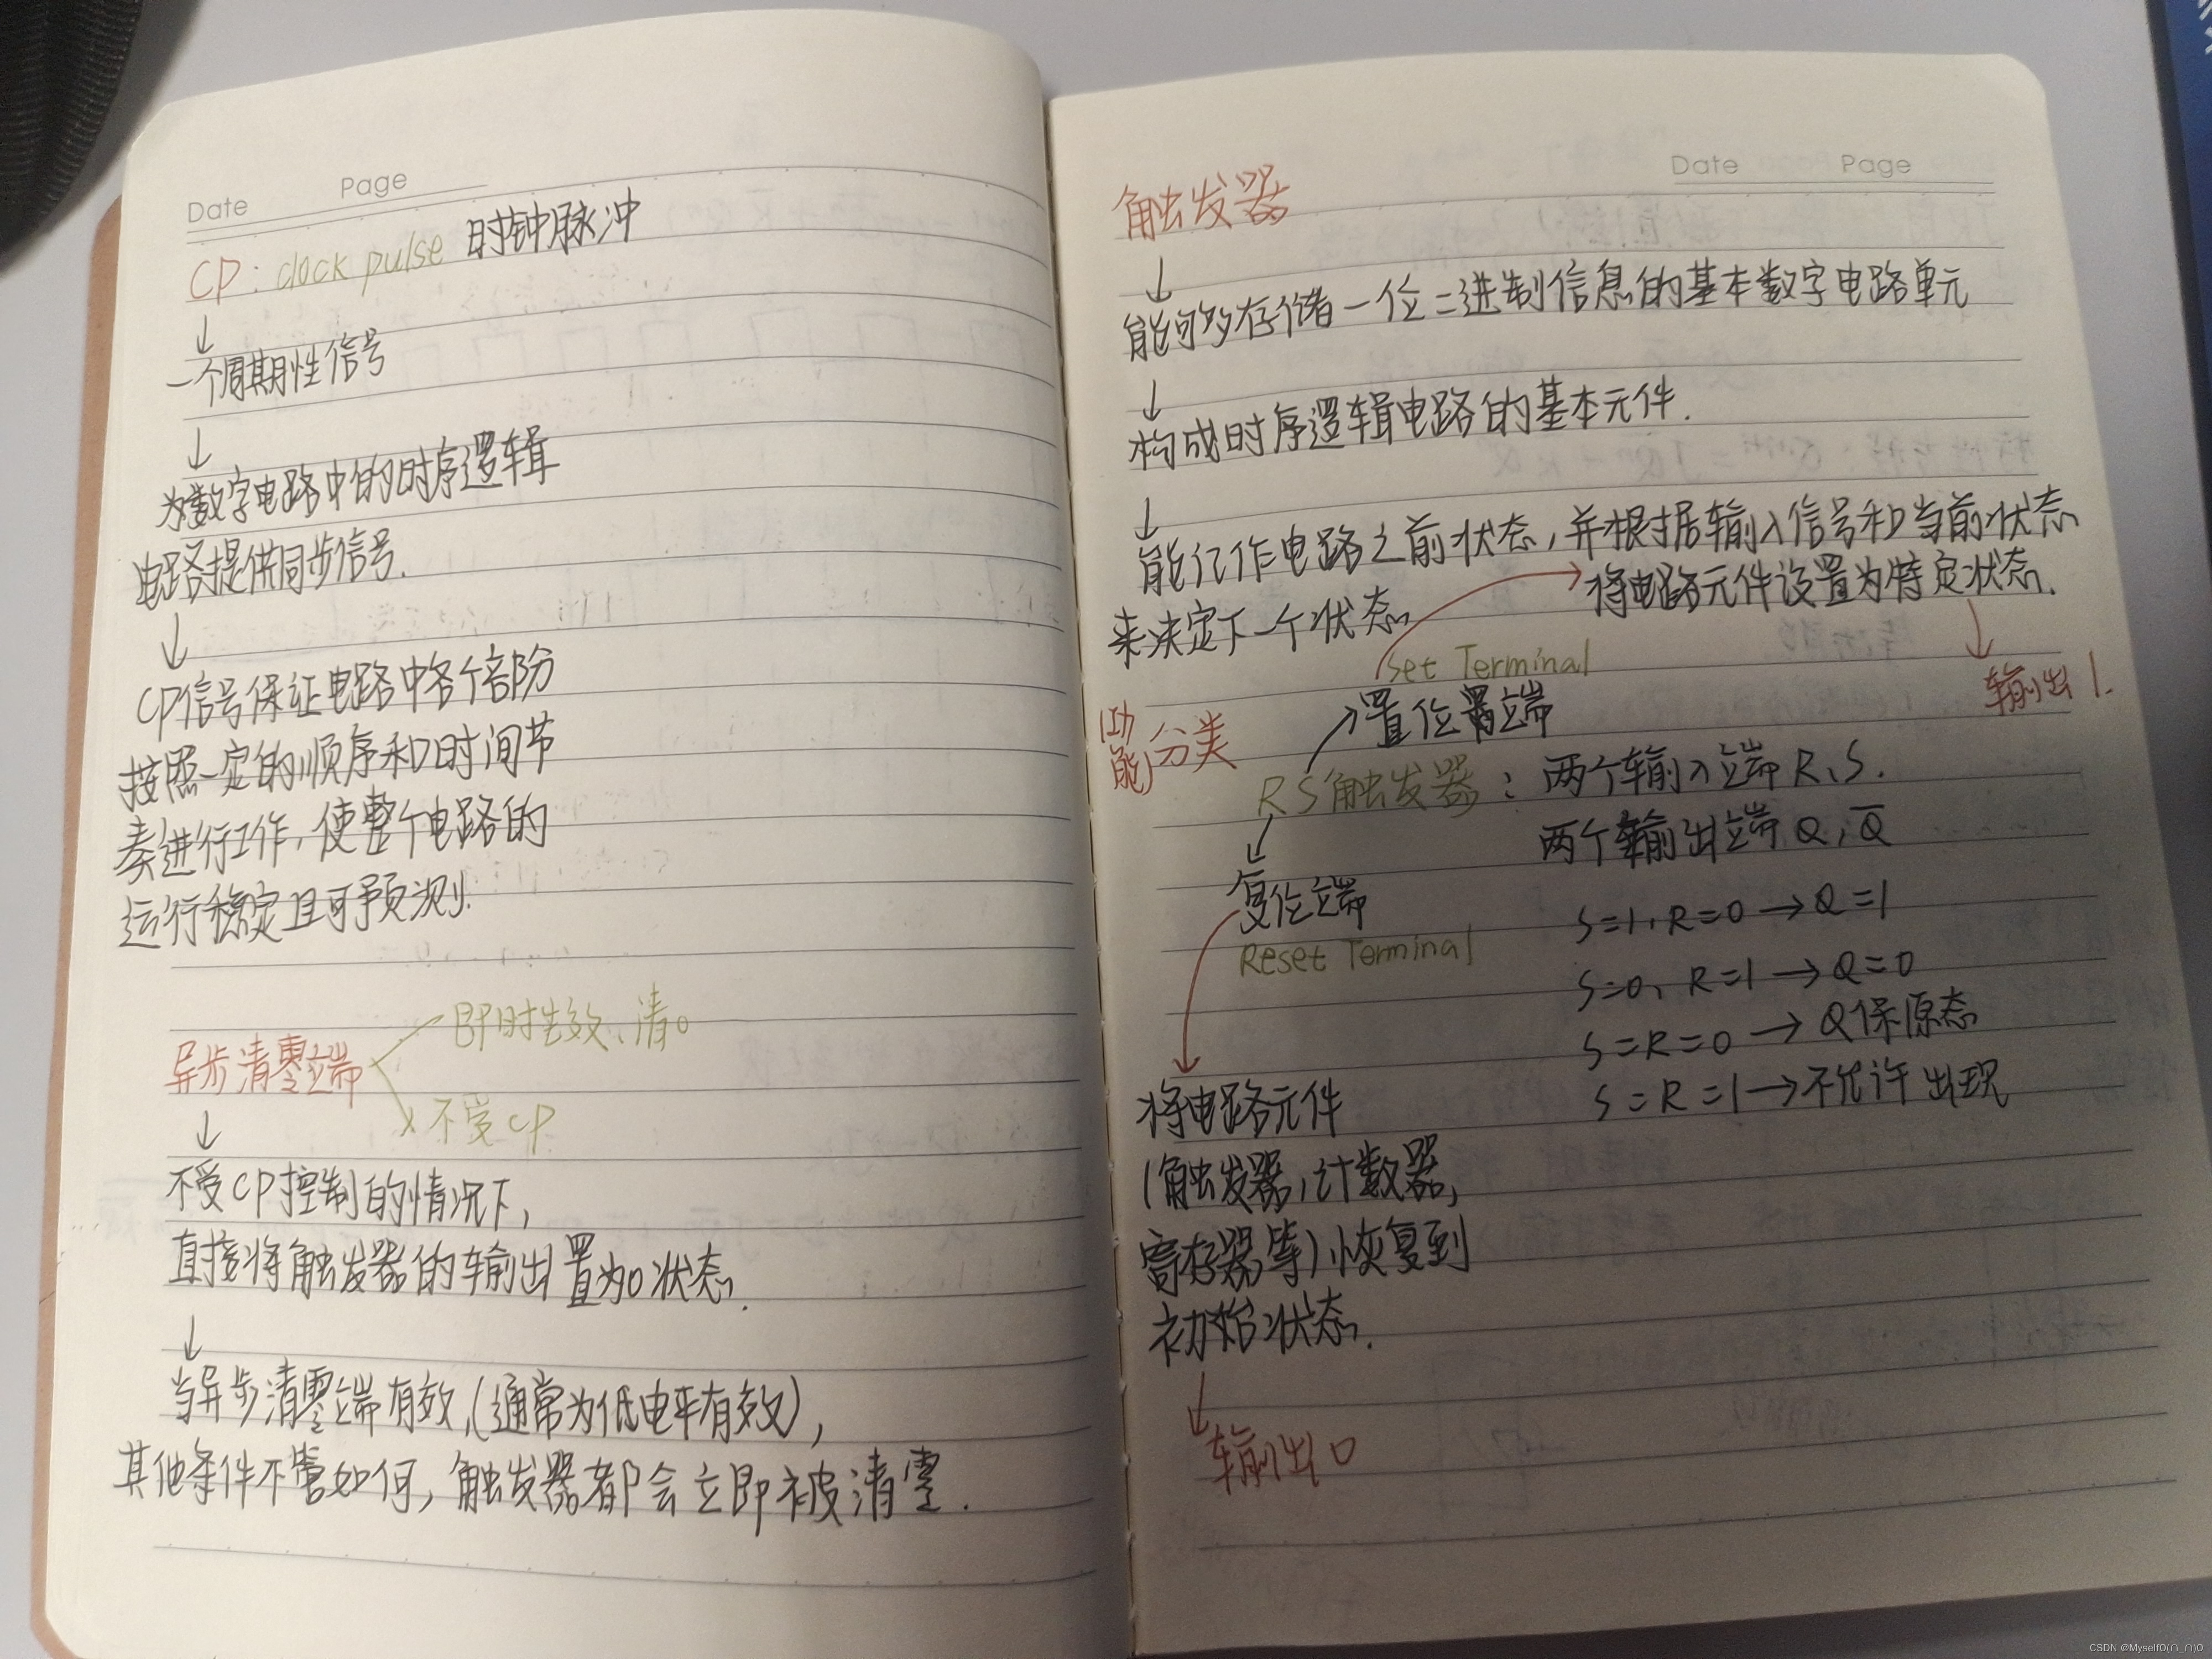 Date Page
CP: clock pulse 时钟脉冲
↓
一个周期性信号
↓
为数字电路中的时序逻辑
电路提供同步信号.
↓
CP信号保证电路中各个部份
按照一定的顺序和时间节
奏进行工作,使整个电路的
运行稳定且可预测.
即时生效,清0
异步清零端
不受CP
↓
不受CP控制的情况下,
直接将触发器的输出置为0状态.
↓
当异步清零端有效,(通常为低电平有效),
其他条件不管如何,触发器都会立即被清零.
Date Page
触发器
↓
能够存储一位二进制信息的基本数字电路单元
↓
构成时序逻辑电路的基本元件.
↓
能记作电路之前状态,并根据输入信号和当前状态
来决定下一个状态.
将电路元件设置为特定状态.
↓
输出1.
Set Terminal
置位置端
(功能)分类
RS触发器:两个输入端R、S.
两个输出端Q,Q̅
复位端
Reset Terminal
S=1,R=0→Q=1
S=0,R=1→Q=0
S=R=0→Q保原态
S=R=1→不允许出现
将电路元件
(触发器,计数器,
寄存器等)恢复到
初始状态.
↓
输出0
CSDN @Myself0(∩_∩)0